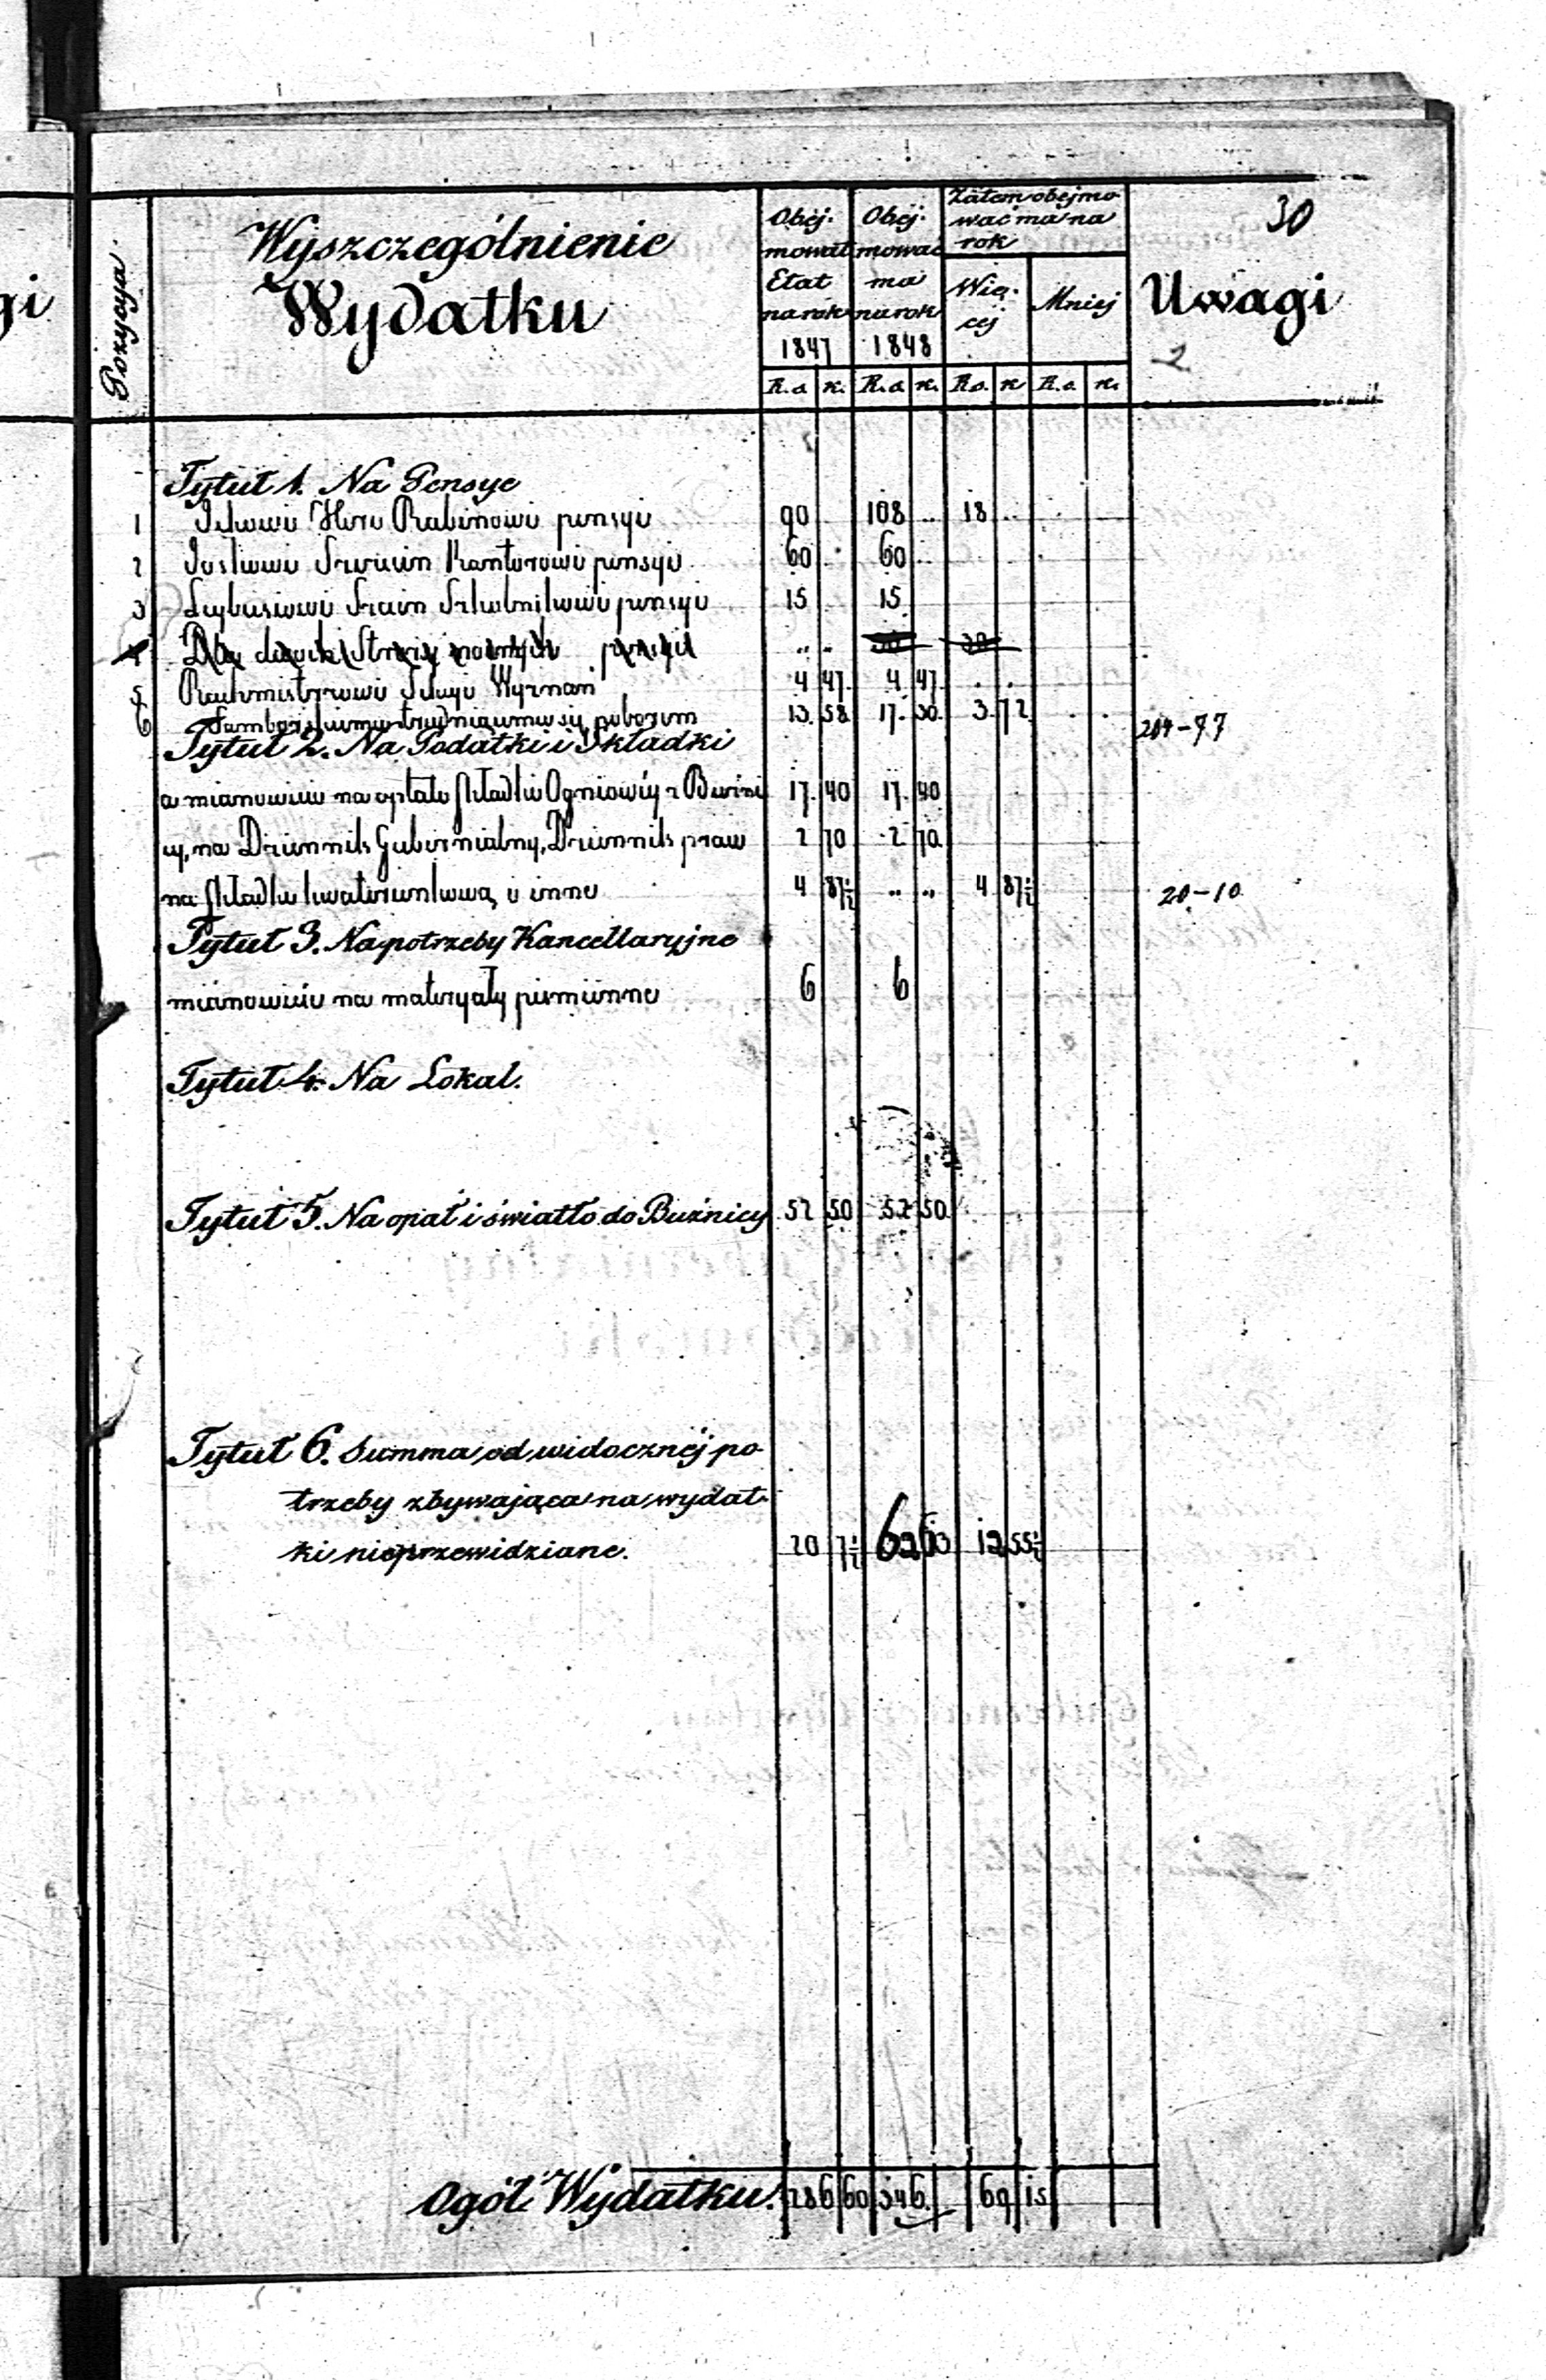 30
gi
Pozycya.
Wyszczególnienie
Wydatku
Obej-
mował
Etat
na rok
1847
Obej-
mować
ma
na rok
1848
Zatem obejmo
wać ma na
rok
Wię-
cej
Mniej
Uwagi
2
R.s. k. R.s. k. R.s. k. R.s. k.
Tytuł 1. Na Pensye
1 Rabinowi pensyi 90 108 .. 18 ..
2 Kantorowi pensyi 60 60
3 Szkolnikowi pensyi 15 15
4 Straży nocnych pensyi .. .. 30 30
5 Rachmistrzowi Wyznań 4 47 4 47
6 trudniącemu się poborem 13. 58 17. 30. 3. 72 204-77
Tytuł 2. Na Podatki i Składki
a mianowicie na opłatę składki Ogniowéy z Buźni 17. 40 17. 40
cy, na Dziennik Gubernialny, Dziennik praw 2 70 2 70
na składkę kwaterunkową i inne 4 87½ .. .. 4 87½ 20-10
Tytuł 3. Na potrzeby Kancellaryjne
mianowicie na materyały piśmienne 6 6
Tytuł 4. Na Lokal.
Tytuł 5. Na opał i światło do Buźnicy 52 50 52 50
Tytuł 6. Summa od widocznéj po
trzeby zbywająca na wydat-
ki nieprzewidziane. 20 7½ 62 63 12 55½
Ogół Wydatku. 286 60 346. 69 15